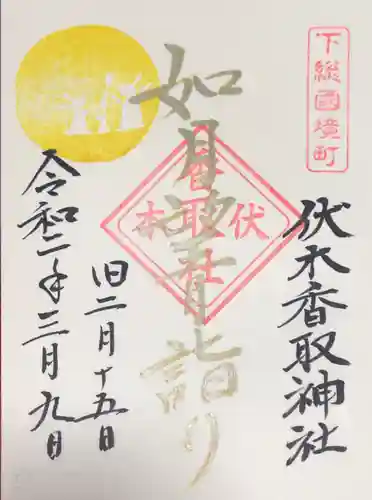 下総國境町
伏木香取神社
如月望月詣り
香取
伏木
社
旧二月十五日
令和二年三月九日